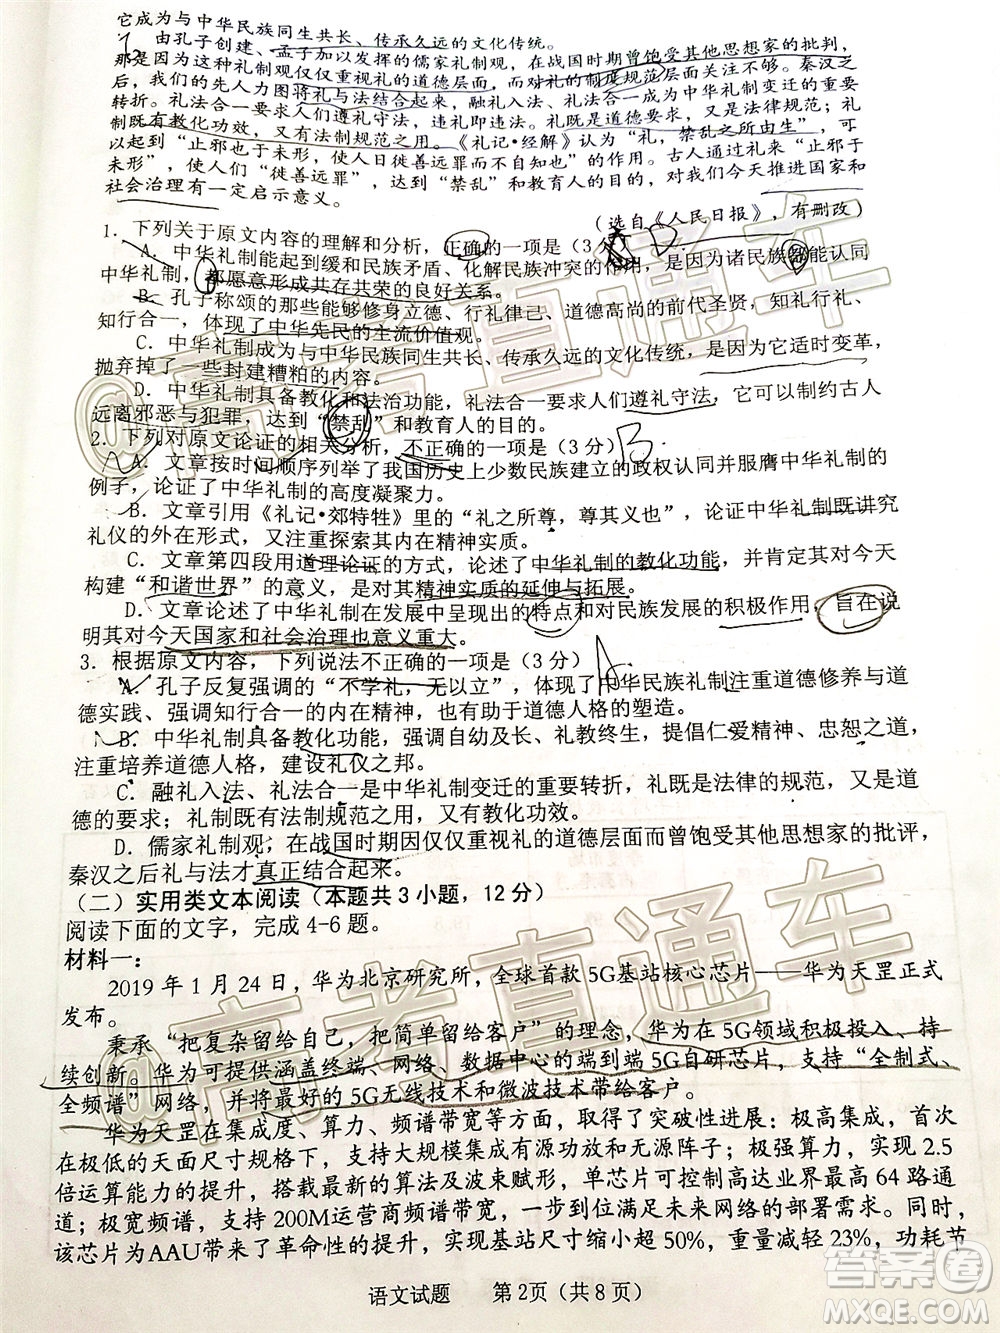 它成为与中华民族同生共长、传承久远的文化传统。
由孔子创建、孟子加以发挥的儒家礼制观，在战国时期曾饱受其他思想家的批判，
那是因为这种礼制观仅仅重视礼的道德层面，而对礼的制度规范层面关注不够。秦汉之
后，我们的先人力图将礼与法结合起来，融礼入法、礼法合一成为中华礼制变迁的重要
转折。礼法合一要求人们遵礼守法，违礼即违法。礼既是道德要求，又是法律规范；礼
制既有教化功效，又有法制规范之用。《礼记·经解》认为“礼，禁乱之所由生”，可
以起到“止邪也于未形，使人日徙善远罪而不自知也”的作用。古人通过礼制“止邪于
未形”，使人们“徙善远罪”，达到“禁乱”和教育人的目的，对我们今天推进国家和
社会治理有一定启示意义。
（选自《人民日报》，有删改）
1．下列关于原文内容的理解和分析，正确的一项是（3分） D
A．中华礼制能起到缓和民族矛盾、化解民族冲突的作用，是因为诸民族都能认同
中华礼制，都愿意形成共存共荣的良好关系。
B．孔子称颂的那些能够修身立德、行礼律己、道德高尚的前代圣贤，知礼行礼、
知行合一，体现了中华先民的主流价值观。
C．中华礼制成为与中华民族同生共长、传承久远的文化传统，是因为它适时变革，
抛弃掉了一些封建糟粕的内容。
D．中华礼制具备教化和法治功能，礼法合一要求人们遵礼守法，它可以制约古人
远离邪恶与犯罪，达到“禁乱”和教育人的目的。
2．下列对原文论证的相关分析，不正确的一项是（3分） B
A．文章按时间顺序列举了我国历史上少数民族建立的政权认同并服膺中华礼制的
例子，论证了中华礼制的高度凝聚力。
B．文章引用《礼记·郊特牲》里的“礼之所尊，尊其义也”，论证中华礼制既讲究
礼仪的外在形式，又注重探索其内在精神实质。
C．文章第四段用道理论证的方式，论述了中华礼制的教化功能，并肯定其对今天
构建“和谐世界”的意义，是对其精神实质的延伸与拓展。
D．文章论述了中华礼制在发展中呈现出的特点和对民族发展的积极作用，旨在说
明其对今天国家和社会治理也意义重大。
3．根据原文内容，下列说法不正确的一项是（3分） A
A．孔子反复强调的“不学礼，无以立”，体现了中华民族礼制注重道德修养与道
德实践、强调知行合一的内在精神，也有助于道德人格的塑造。
B．中华礼制具备教化功能，强调自幼及长、礼教终生，提倡仁爱精神、忠恕之道，
注重培养道德人格，建设礼仪之邦。
C．融礼入法、礼法合一是中华礼制变迁的重要转折，礼既是法律的规范，又是道
德的要求；礼制既有法制规范之用，又有教化功效。
D．儒家礼制观，在战国时期因仅仅重视礼的道德层面而曾饱受其他思想家的批评，
秦汉之后礼与法才真正结合起来。
（二）实用类文本阅读（本题共3小题，12分）
阅读下面的文字，完成4-6题。
材料一：
2019年1月24日，华为北京研究所，全球首款5G基站核心芯片——华为天罡正式
发布。
秉承“把复杂留给自己，把简单留给客户”的理念，华为在5G领域积极投入、持
续创新。华为可提供涵盖终端、网络、数据中心的端到端5G自研芯片，支持“全制式、
全频谱”网络，并将最好的5G无线技术和微波技术带给客户。
华为天罡在集成度、算力、频谱带宽等方面，取得了突破性进展：极高集成，首次
在极低的天面尺寸规格下，支持大规模集成有源功放和无源阵子；极强算力，实现2.5
倍运算能力的提升，搭载最新的算法及波束赋形，单芯片可控制高达业界最高64路通
道；极宽频谱，支持200M运营商频谱带宽，一步到位满足未来网络的部署需求。同时，
该芯片为AAU带来了革命性的提升，实现基站尺寸缩小超50%，重量减轻23%，功耗节
语文试题　第2页（共8页）
@高考直通车
@高考直通车
答案圈
MXQE.COM